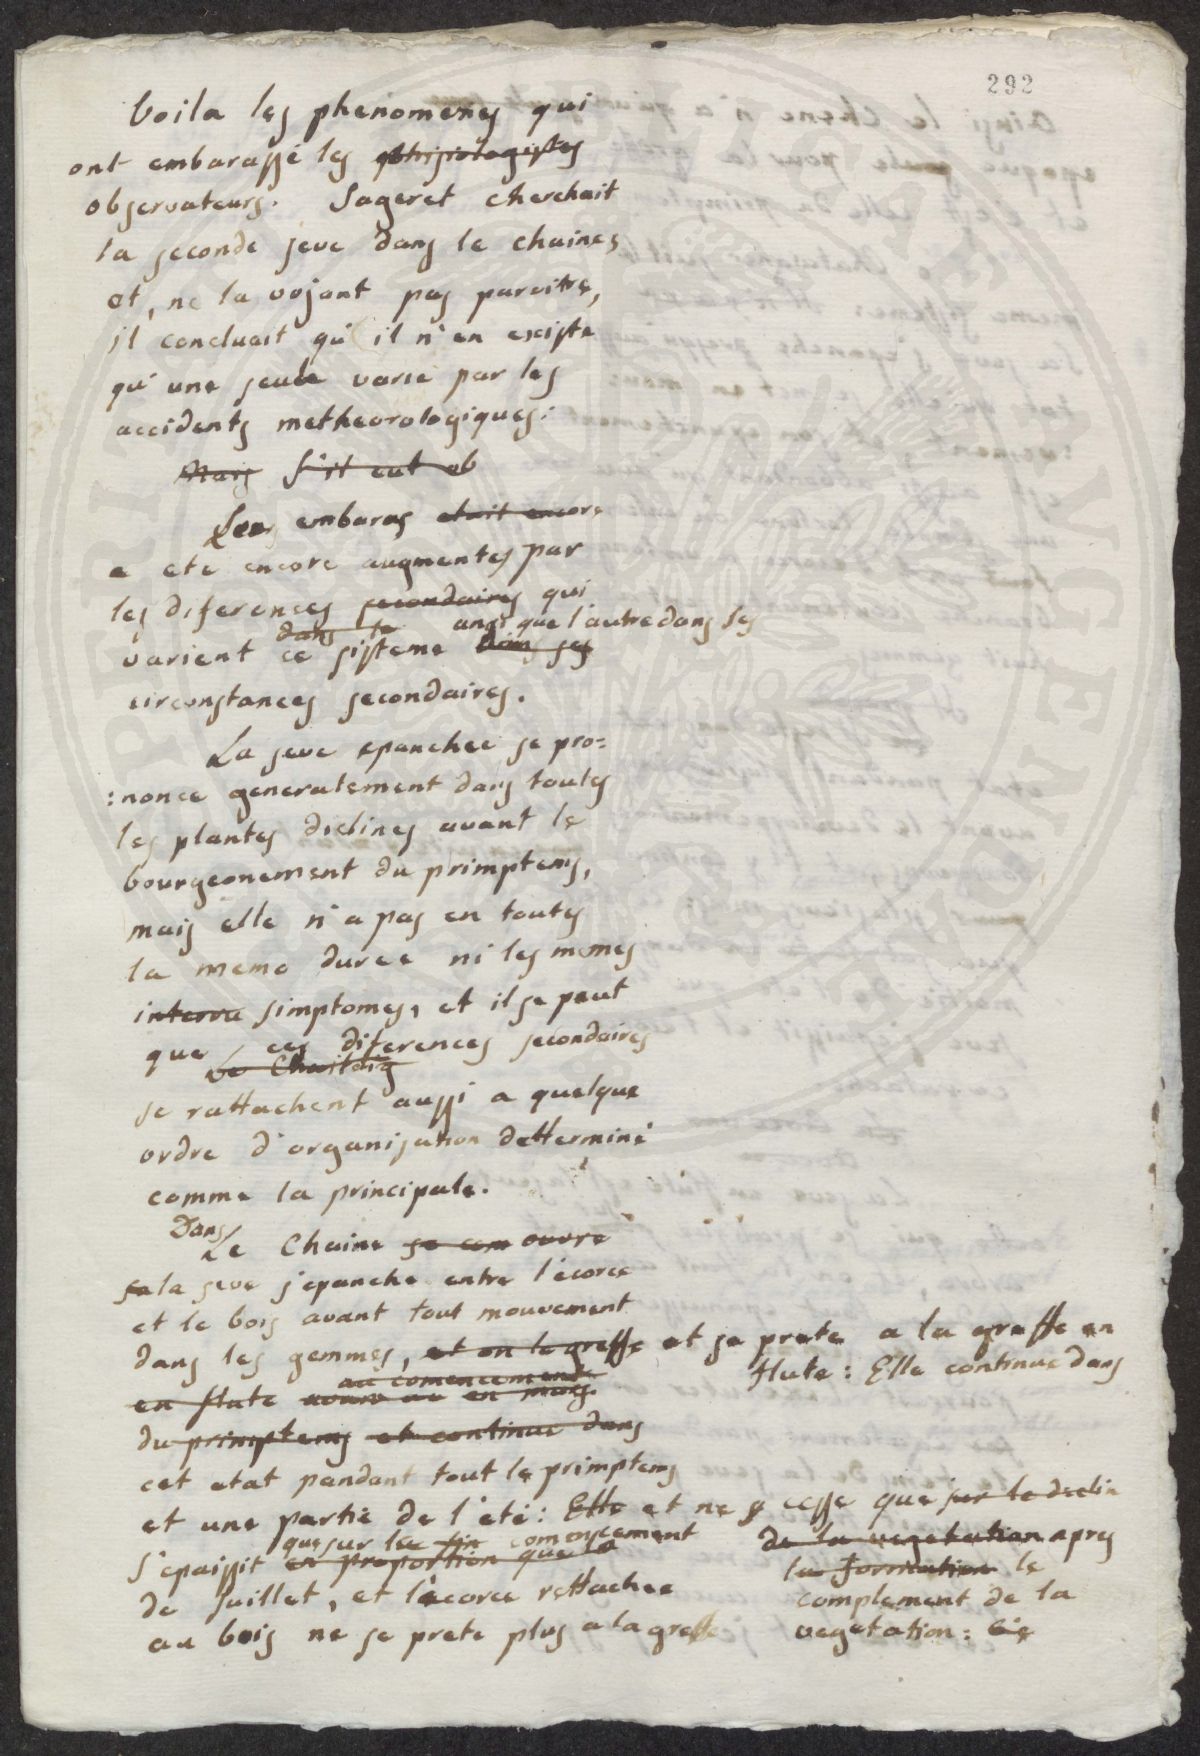 292
Voila les phenomenes qui
ont embarassé les phisiologistes
observateurs. Sageret cherchait
la seconde seve dans le chaines
et, ne la vojant pas paroitre,
il concluait qu'il n'en existe
qu'une seule varié par les
accidents metheorologiques:
Mais s'il eut ob
Les embaras etait encore
a ete encore augmentes par
les diferences secondaires qui
dans le ansi que l'autre dans ses
varient ce sisteme dans ses
circonstances secondaires.
La seve epanchee se pro=
:nonce generalement dans toutes
les plantes diclines avant le
bourgeonement du primptems,
mais elle n'a pas en toutes
la meme duree ni les memes
interva simptomes, et il se peut
que ces diferences secondaires
Le Chaitaig
se rattachent aussi a quelque
ordre d'organisation dettermine
comme la principale.
Dans
Le Chaine se com ouvre
sa la seve s'epanche entre l'ecorce
et le bois avant tout mouvement
dans les gemmes, et on le greffe et se prete a la greffe en
flute: Elle continue dans
au comencement
en flute en mars
du primptems et continue dans
cet etat pandant tout le primptems
et une partie de l'eté: Elle et ne cesse que sur le declin
de la vegetation apres
la formation le
complement de la
vegetation: 
que sur la fin comencement
s'epaissit en proportion que la
de Juillet, et l'ecorce rettachee
au bois ne se prete plus a la greffe